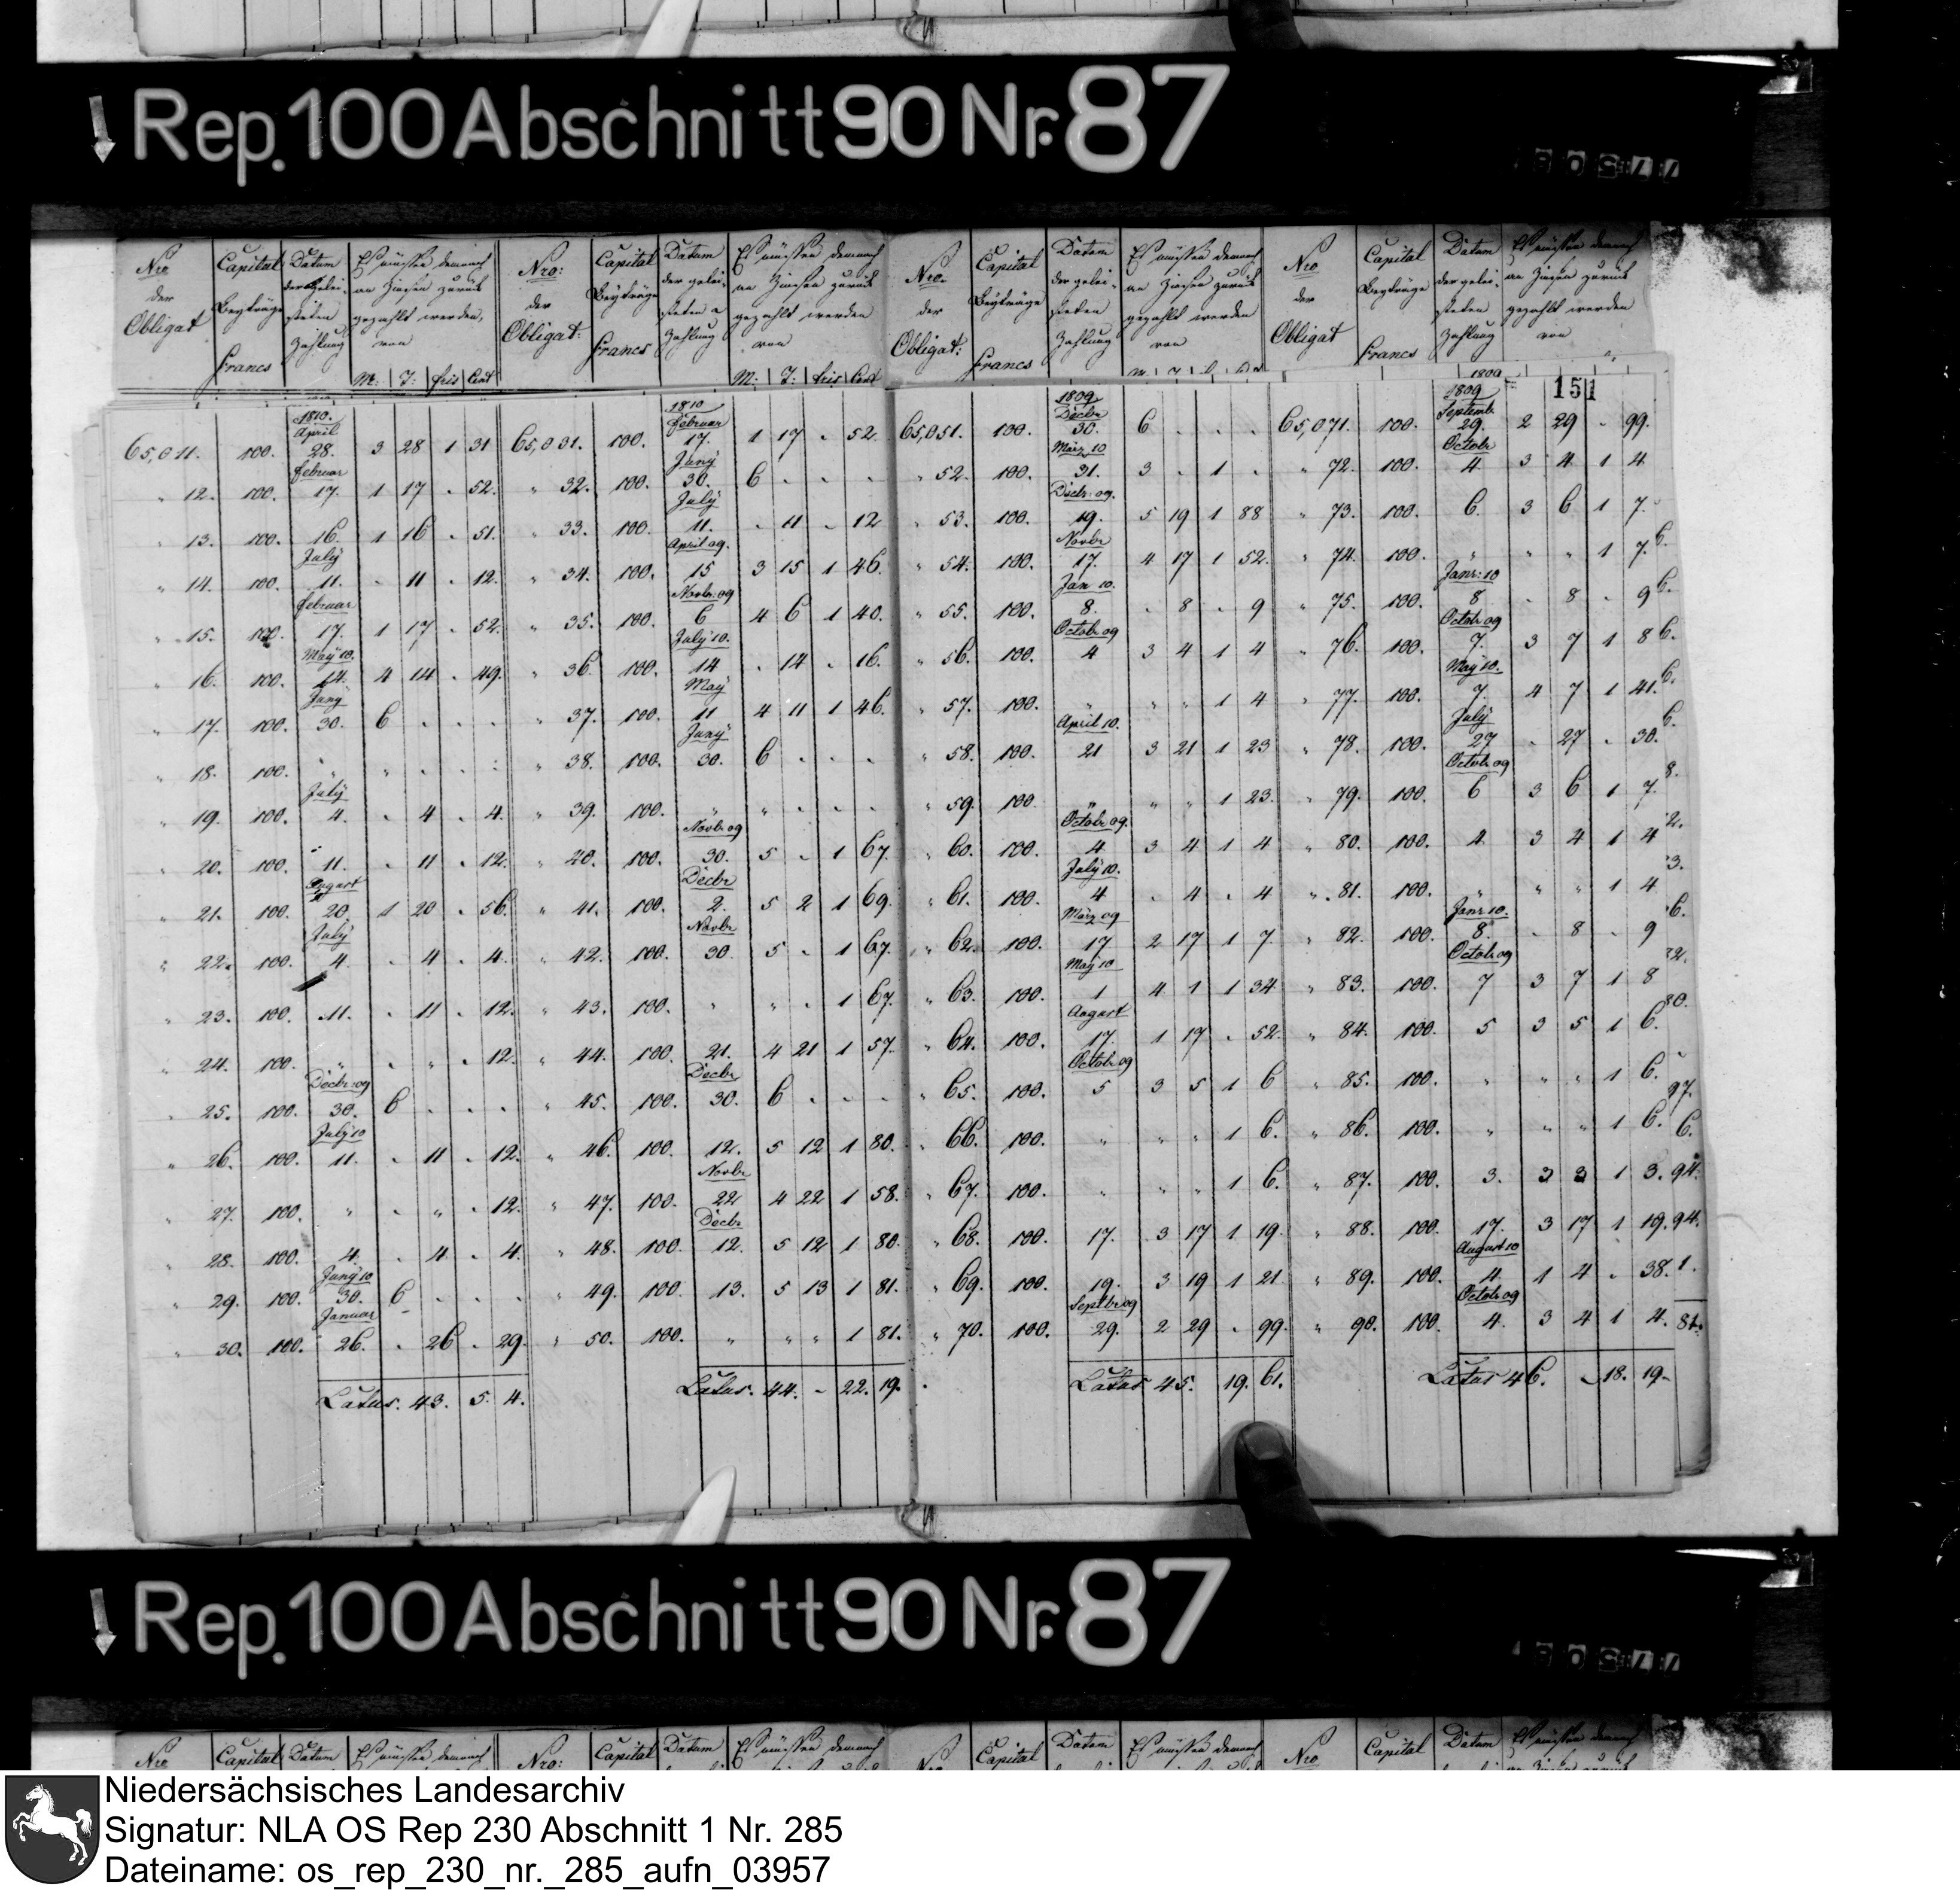 Rep. 100 Abschnitt 90 Nr. 87
Nro der Obligat Capital Beyträge Francs Datum der gelei- steten Zahlung Es müssen demnach an Zinsen zurück gezahlt werden, von M: T: frcs Cent
Nro: der Obligat: Capital Beyträge Francs Datum der gelei- steten Zahlung Es müssen demnach an Zinsen zurück gezahlt werden von M: T: frcs Cent
Nro. der Obligat: Capital Beyträge Francs Datum der gelei- steten Zahlung Es müssen demnach an Zinsen zurück gezahlt werden von
Nro der Obligat Capital Beyträge Francs Datum der gelei- steten Zahlung Es müssen demnach an Zinsen zurück gezahlt werden von
151
1810. April
65,011. 100. 28. 3 28 1 31
Februar
" 12. 100. 17. 1 17 - 52.
" 13. 100. 16. 1 16 - 51.
July
" 14. 100. 11. - 11 - 12.
Februar
" 15. 100. 17. 1 17 - 52.
May 10.
" 16. 100. 14. 4 14 - 49.
Juny
" 17. 100. 30. 6 - - -
" 18. 100. " " - - -
July
" 19. 100. 4. - 4 - 4.
" 20. 100. 11. - 11 - 12.
August
" 21. 100. 20. 1 20 - 56.
July
" 22. 100. 4. - 4 - 4.
" 23. 100. 11. - 11 - 12.
" 24. 100. " - " - 12.
Decbr. 09
" 25. 100. 30. 6 - - -
July 10
" 26. 100. 11. - 11 - 12.
" 27. 100. " - " - 12.
" 28. 100. 4. - 4 - 4.
Juny 10
" 29. 100. 30. 6 - - -
Januar
" 30. 100. 26. - 26 - 29.
Latus. 43. 5. 4.
1810 Februar
65,031. 100. 17. 1 17 - 52.
Juny
" 32. 100. 30. 6 - - -
July
" 33. 100. 11. - 11 - 12
April 09.
" 34. 100. 15 3 15 1 46.
Novbr. 09
" 35. 100. 6 4 6 1 40.
July 10.
" 36. 100. 14 - 14 - 16.
May
" 37. 100. 11 4 11 1 46.
Juny
" 38. 100. 30. 6 - - -
" 39. 100. " " - - -
Novbr. 09
" 40. 100. 30. 5 - 1 67.
Decbr
" 41. 100. 2. 5 2 1 69.
Novbr
" 42. 100. 30. 5 - 1 67.
" 43. 100. " " - 1 67.
" 44. 100. 21. 4 21 1 57.
Decbr
" 45. 100. 30. 6 - - -
" 46. 100. 12. 5 12 1 80.
Novbr
" 47. 100. 22 4 22 1 58.
Decbr
" 48. 100. 12. 5 12 1 80.
" 49. 100. 13. 5 13 1 81.
" 50. 100. " " " 1 81.
Latus. 44. - 22. 19.
1809 Decbr
65,051. 100. 30. 6 - - -
März 10
" 52. 100. 31. 3 - 1 -
Decbr. 09.
" 53. 100. 19. 5 19 1 88
Novbr
" 54. 100. 17. 4 17 1 52.
Jan 10.
" 55. 100. 8. - 8 - 9
Octob. 09
" 56. 100. 4 3 4 1 4
" 57. 100. " " " 1 4
April 10.
" 58. 100. 21 3 21 1 23
" 59. 100. " " " 1 23.
Octob. 09.
" 60. 100. 4 3 4 1 4
July 10.
" 61. 100. 4 - 4 - 4
März 09
" 62. 100. 17 2 17 1 7.
May 10
" 63. 100. 1 4 1 1 34
August
" 64. 100. 17. 1 17 - 52.
Octob. 09
" 65. 100. 5 3 5 1 6
" 66. 100. " " " 1 6.
" 67. 100. " " " 1 6.
" 68. 100. 17. 3 17 1 19.
" 69. 100. 19. 3 19 1 21
Septbr 09
" 70. 100. 29. 2 29 - 99.
Latus 45. 19. 61.
1809
1809 Septemb.
65,071. 100. 29. 2 29 - 99.
Octobr
" 72. 100. 4 3 4 1 4
" 73. 100. 6. 3 6 1 7.
" 74. 100. " " " 1 7.
Janr: 10
" 75. 100. 8 - 8 - 9
Octob. 09
" 76. 100. 7. 3 7 1 8
May 10.
" 77. 100. 7. 4 7 1 41.
July
" 78. 100. 27 - 27 - 30.
Octob. 09
" 79. 100. 6 3 6 1 7.
" 80. 100. 4. 3 4 1 4
" 81. 100. " " " 1 4
Janr 10.
" 82. 100. 8. - 8 - 9
Octob. 09
" 83. 100. 7 3 7 1 8
" 84. 100. 5 3 5 1 6.
" 85. 100. " " " 1 6.
" 86. 100. " " " 1 6.
" 87. 100. 3. 3 3 1 3.
" 88. 100. 17. 3 17 1 19.
August 10
" 89. 100. 4. 1 4 - 38.
Octob. 09
" 90. 100. 4. 3 4 1 4.
Latus 46. - 18. 19.
Rep. 100 Abschnitt 90 Nr. 87
Nro Capital Datum Es müssen demnach Nro: Capital Datum Es müssen demnach Capital Datum Es müssen demnach Nro Capital Datum Es müssen demnach
Niedersächsisches Landesarchiv
Signatur: NLA OS Rep 230 Abschnitt 1 Nr. 285
Dateiname: os_rep_230_nr._285_aufn_03957